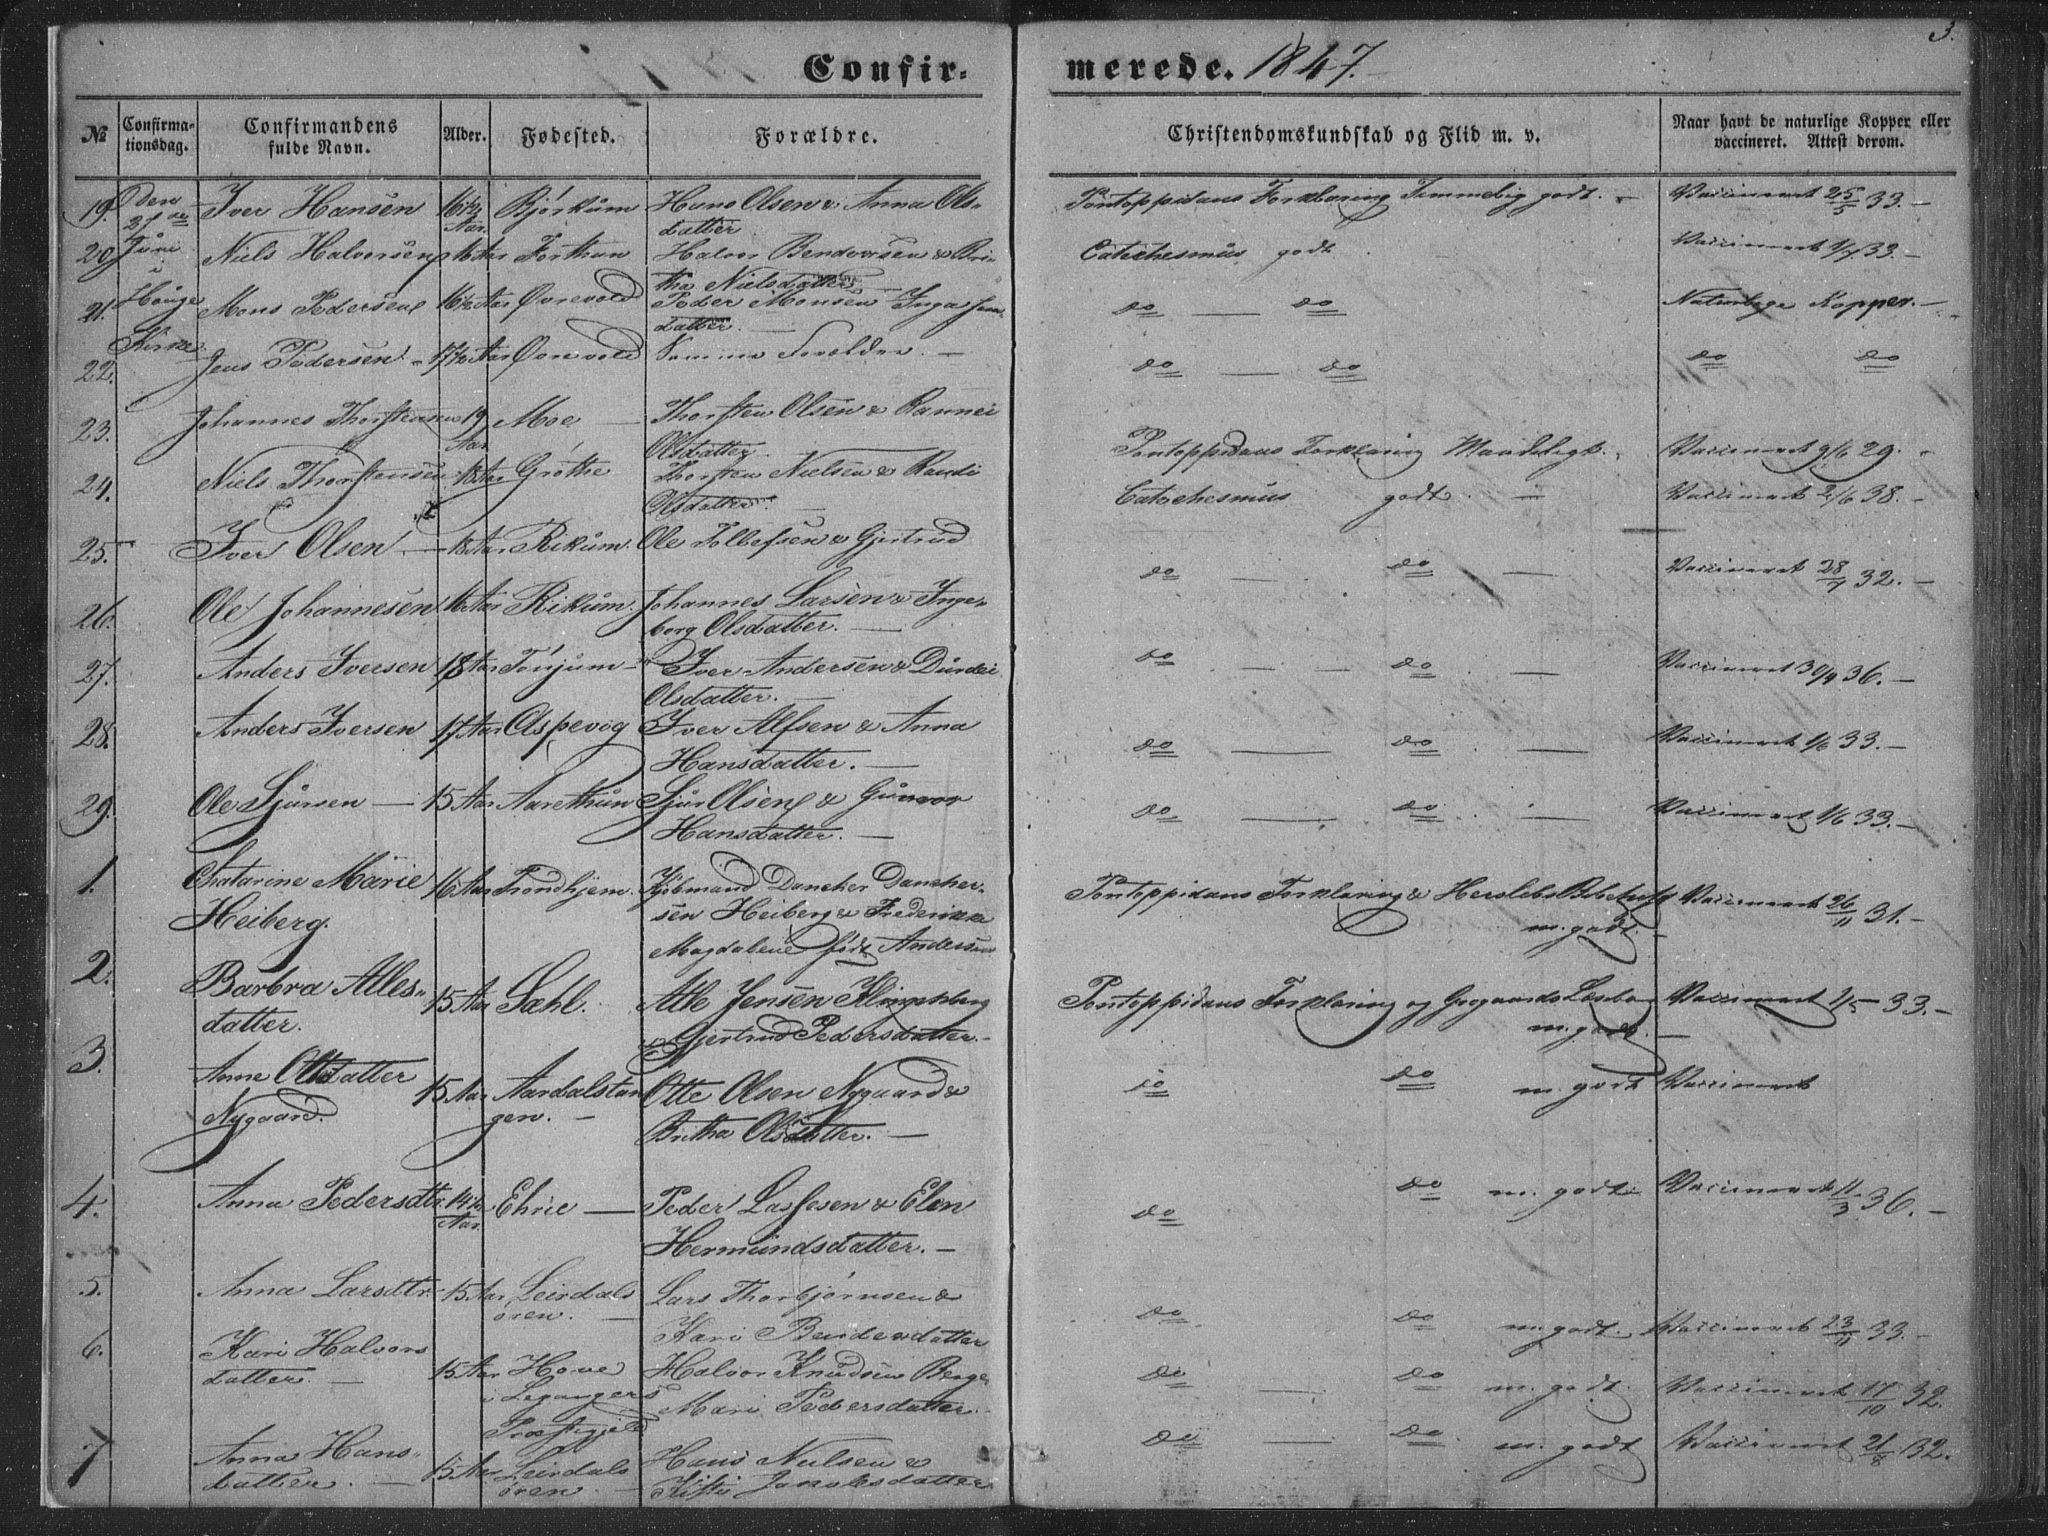 Confir-
merede. 1847.
3.
№
Confirma-
tionsdag.
Confirmandens
fulde Navn.
Alder.
Fødested.
Forældre.
Christendomskundskab og Flid m. v.
Naar havt de naturlige Kopper eller
vaccineret. Attest derom.
19. Den Iver Hansen 16½ Bjórkum Hans Olsen & Anna Ols- Pontoppidans Forklaring Temmelig godt. Vaccineret 25/5 33.
27de Aar. datter
20. Juni Niels Halvorsen 16 Aar Forthun Halvor Bendixsen & Bri- Catechesmus godt Vaccineret 1/7 33.
i tha Nielsdatter
21. Houge Mons Pedersen 16½ Aar Ourevold Peder Monsen Inga Jens- do do Naturlige Kopper.
datter.
Kirke
22. Jens Pedersen 17½ Aar Ourevold Samme Forældre. do do do do
23. Johannes Thorstensen 19 Moe Thorsten Olsen & Rannei Pontoppidans Forklaring Maadeligt. Vaccineret 9/6 29.
Aar Olsdatter
24. Niels Thorstensen 18 Aar Gróthe Thorsten Nielsen & Randi Catechesmus godt. Vaccineret 2/6 38.
Olsdatter.
25. Iver Olsen 18 Aar Rikum. Ole Tollefsen & Gjertrud do do Vaccineret 28/7 32.
26. Ole Johannesen 16 Aar Rikum. Johannes Larsen & Inge-
borg Olsdatter.
27. Anders Iversen 18 Aar Tónjum Iver Andersen & Dúrdei do do Vaccineret 30/9 36.
Olsdatter.
28. Anders Iversen 17 Aar Aspevig Iver Alfsen & Anna do do Vaccineret 1/6 33.
Hansdatter.
29. Ole Sjursen 15 Aar Aarethun Sjur Olsen & Gunvor do do Vaccineret 1/6 33.
Hansdatter.
1. Chatarine Marie 16 Aar Trondhjem. Kjóbmand Dancher Dancher- Pontoppidans Forklaring & Herslebs Vaccineret 26/11 31.
Heiberg. sen Heiberg & Frederikke m. godt.
Magdalene født Andersen
2. Barbra Atles- 15 Aar Sæhl. Atle Jensen Klingenberg Pontoppidans Forklaring og Grogaards Læsebog Vaccineret 2/5 33.
datter. Gjertrud Pedersdatter. m. godt.
3. Anne Ottsdatter 15 Aar Aardalstan- Otte Olsen Nygaard & do do m. godt Vaccineret
Nygaard. gen. Britha Olsdatter.
4. Anna Pedersdtr. 14½ Ehrie Peder Lassesen & Elen do do m. godt Vaccineret 11/3 36.
Aar. Hermundsdatter.
5. Anna Larsdtr. 15 Aar Leirdals Lars Thorbjørnsen & do do m. godt. Vaccineret 23/11 33.
óren. Kari
6. Kari Halvors 15 Aar Hove Halvor Knudsen Berge do do m. godt. Vaccineret 17/10 32.
datter. i Leganger Mari Pedersdatter.
Præstegjeld
7 Anna Hans- 15 Aar Leirdals Hans Nielsen & do do m. godt Vaccineret 21/8 32.
datter. óren. Jacobsdatter